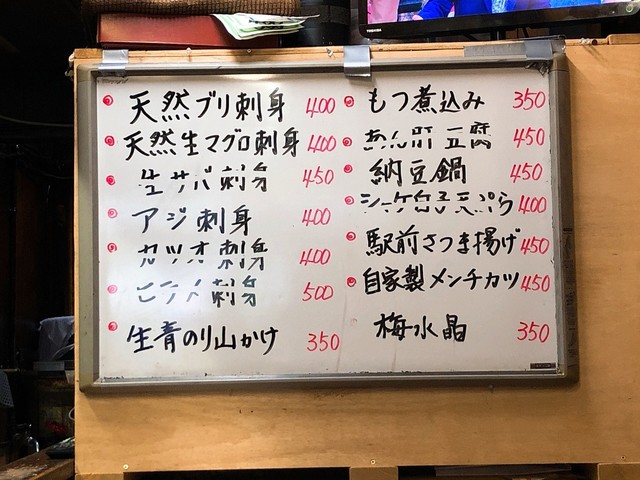 天然ブリ刺身 400
天然生マグロ刺身 400
生サバ刺身 450
アジ刺身 400
カツオ刺身 400
ヒラメ刺身 500
生青のり山かけ 350
もつ煮込み 350
あん肝豆腐 450
納豆鍋 450
天ぷら 400
駅前さつま揚げ 450
自家製メンチカツ 450
梅水晶 350
TOSHIBA